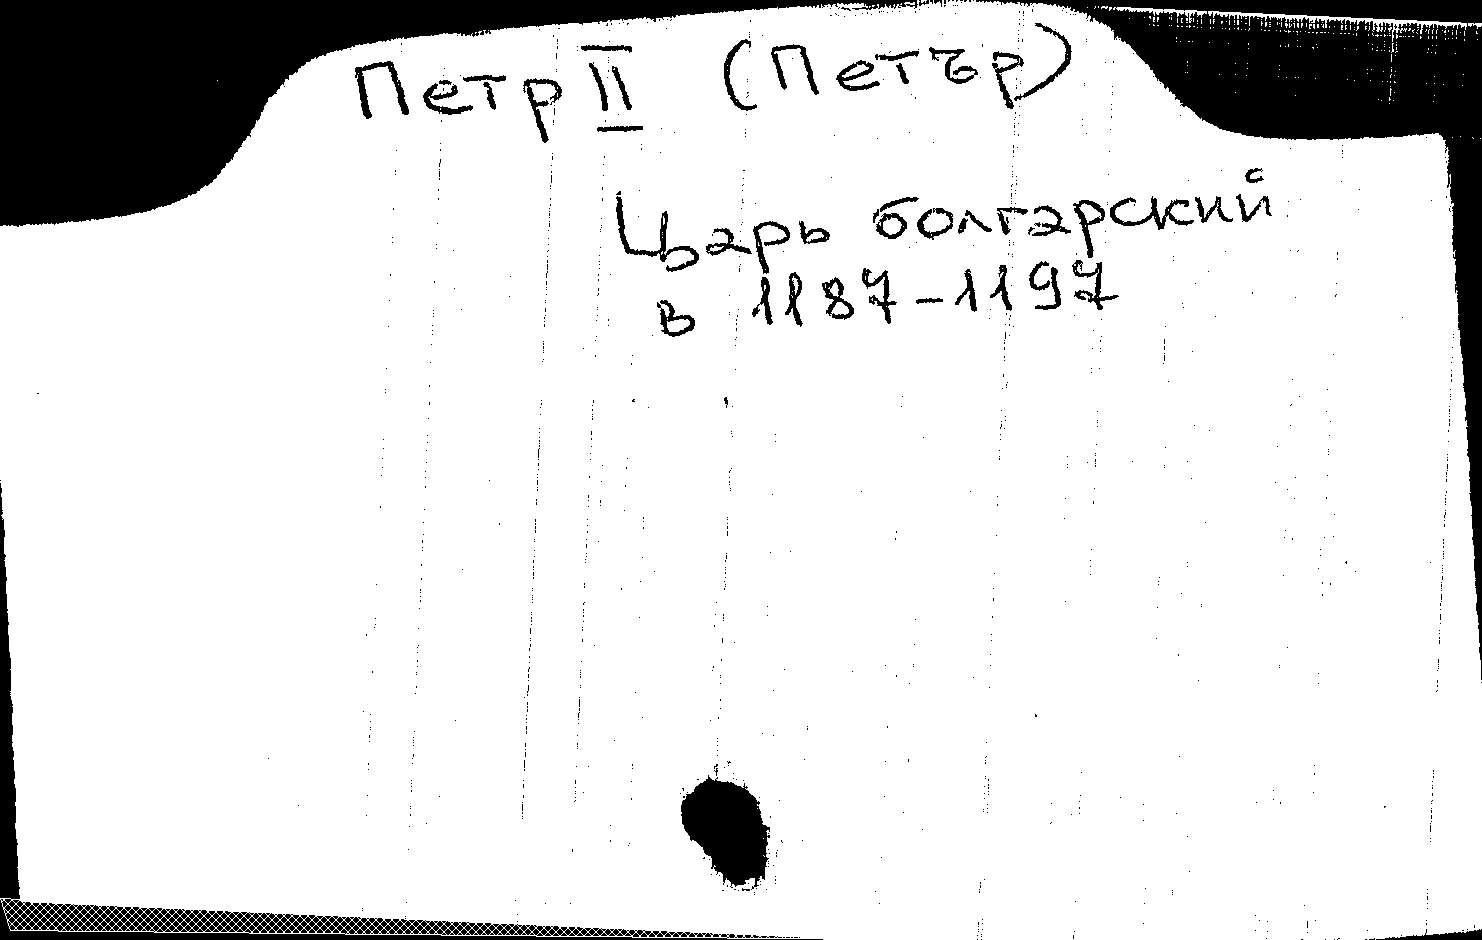 Петр II (Петър)
Царь болгарский
в 1187-1197